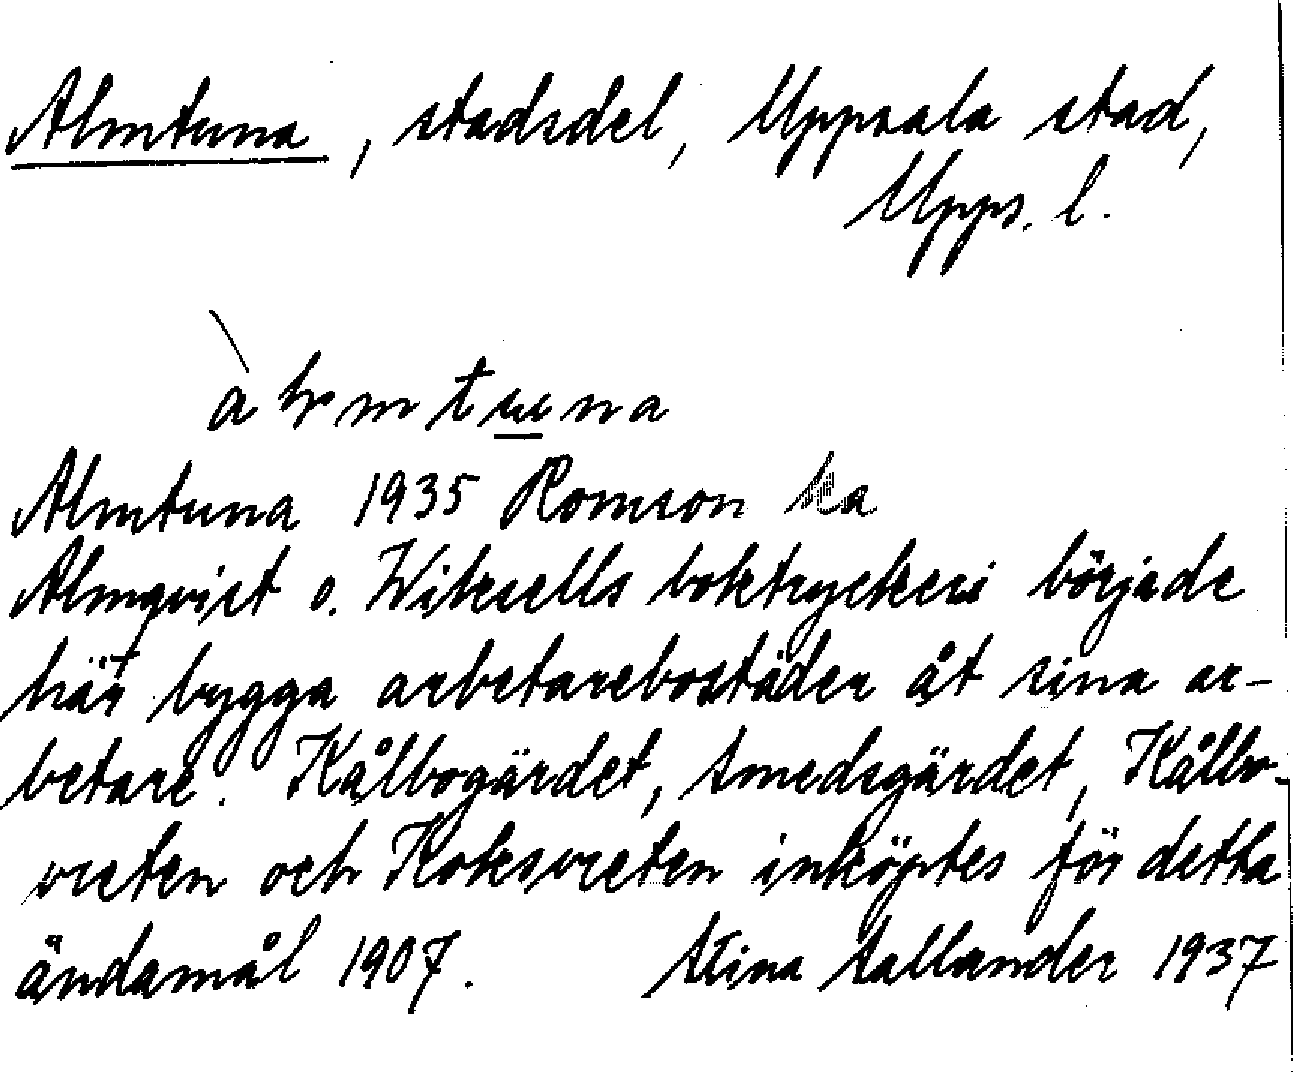 Almtuna, stadsdel, Uppsala stad,
Upps. l.
Almtuna 1935 Romson ka
Almqvist o. Wiksells boktryckeri började
här bygga arbetarebostäder åt sina ar-
betare. Kålbogärdet, Smedsgärdet, Kålbo-
vreten och Koksvreten inköptes för detta
ändamål 1907. Stina Sallander 1937